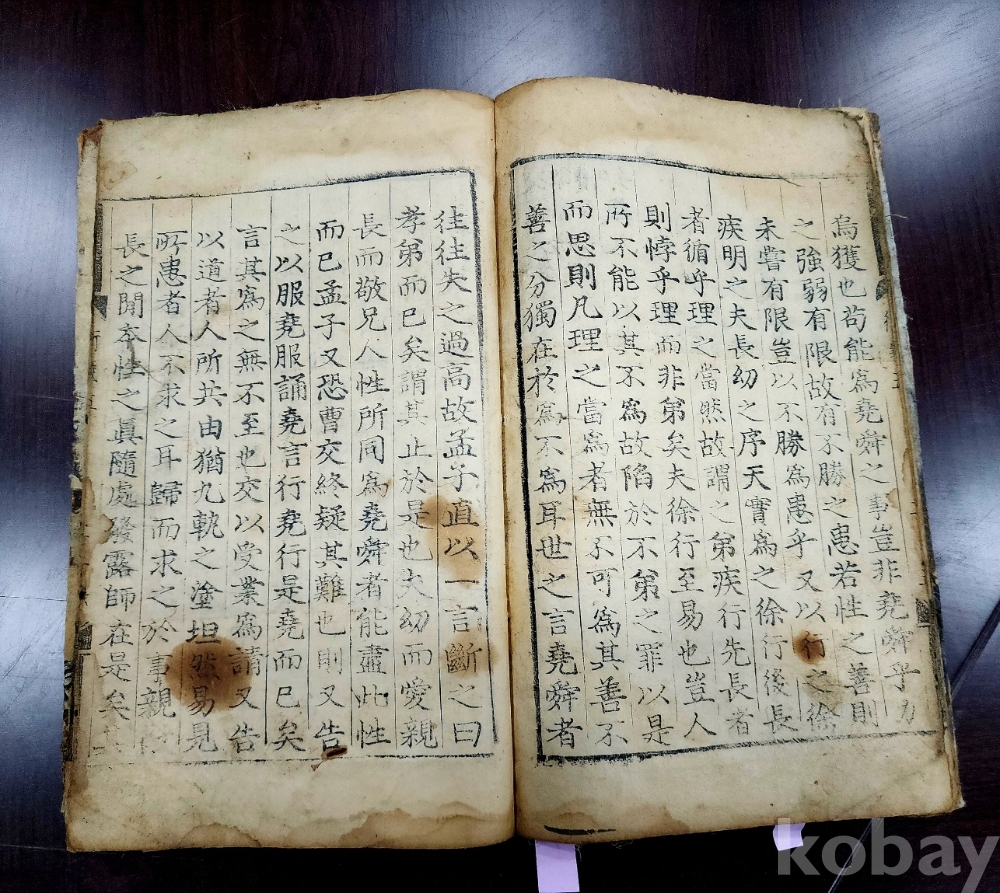 烏獲也苟能爲堯舜之事豈非堯舜乎力
之強弱有限故有不勝之患若性之善則
未嘗有限豈以不勝爲患乎又以行之徐
疾明之夫長幼之序天實爲之徐行後長
者循乎理之當然故謂之弟疾行先長者
則悖乎理而非弟矣夫徐行至易也豈人
所不能以其不爲故陷於不弟之罪以是
而思則凡理之當爲者無不可爲其善不
善之分獨在於爲不爲耳世之言堯舜者
往往失之過高故孟子直以一言斷之曰
孝弟而已矣謂其止於是也夫幼而愛親
長而敬兄人性所同爲堯舜者能盡此性
而已孟子又恐曹交終疑其難也則又告
之以服堯服誦堯言行堯行是堯而已矣
言其爲之無不至也交以受業爲請又告
以道者人所共由猶九軌之塗坦然易見
所患者人不求之耳歸而求之於事親
長之閒本性之眞隨處發露師在是矣
kobay